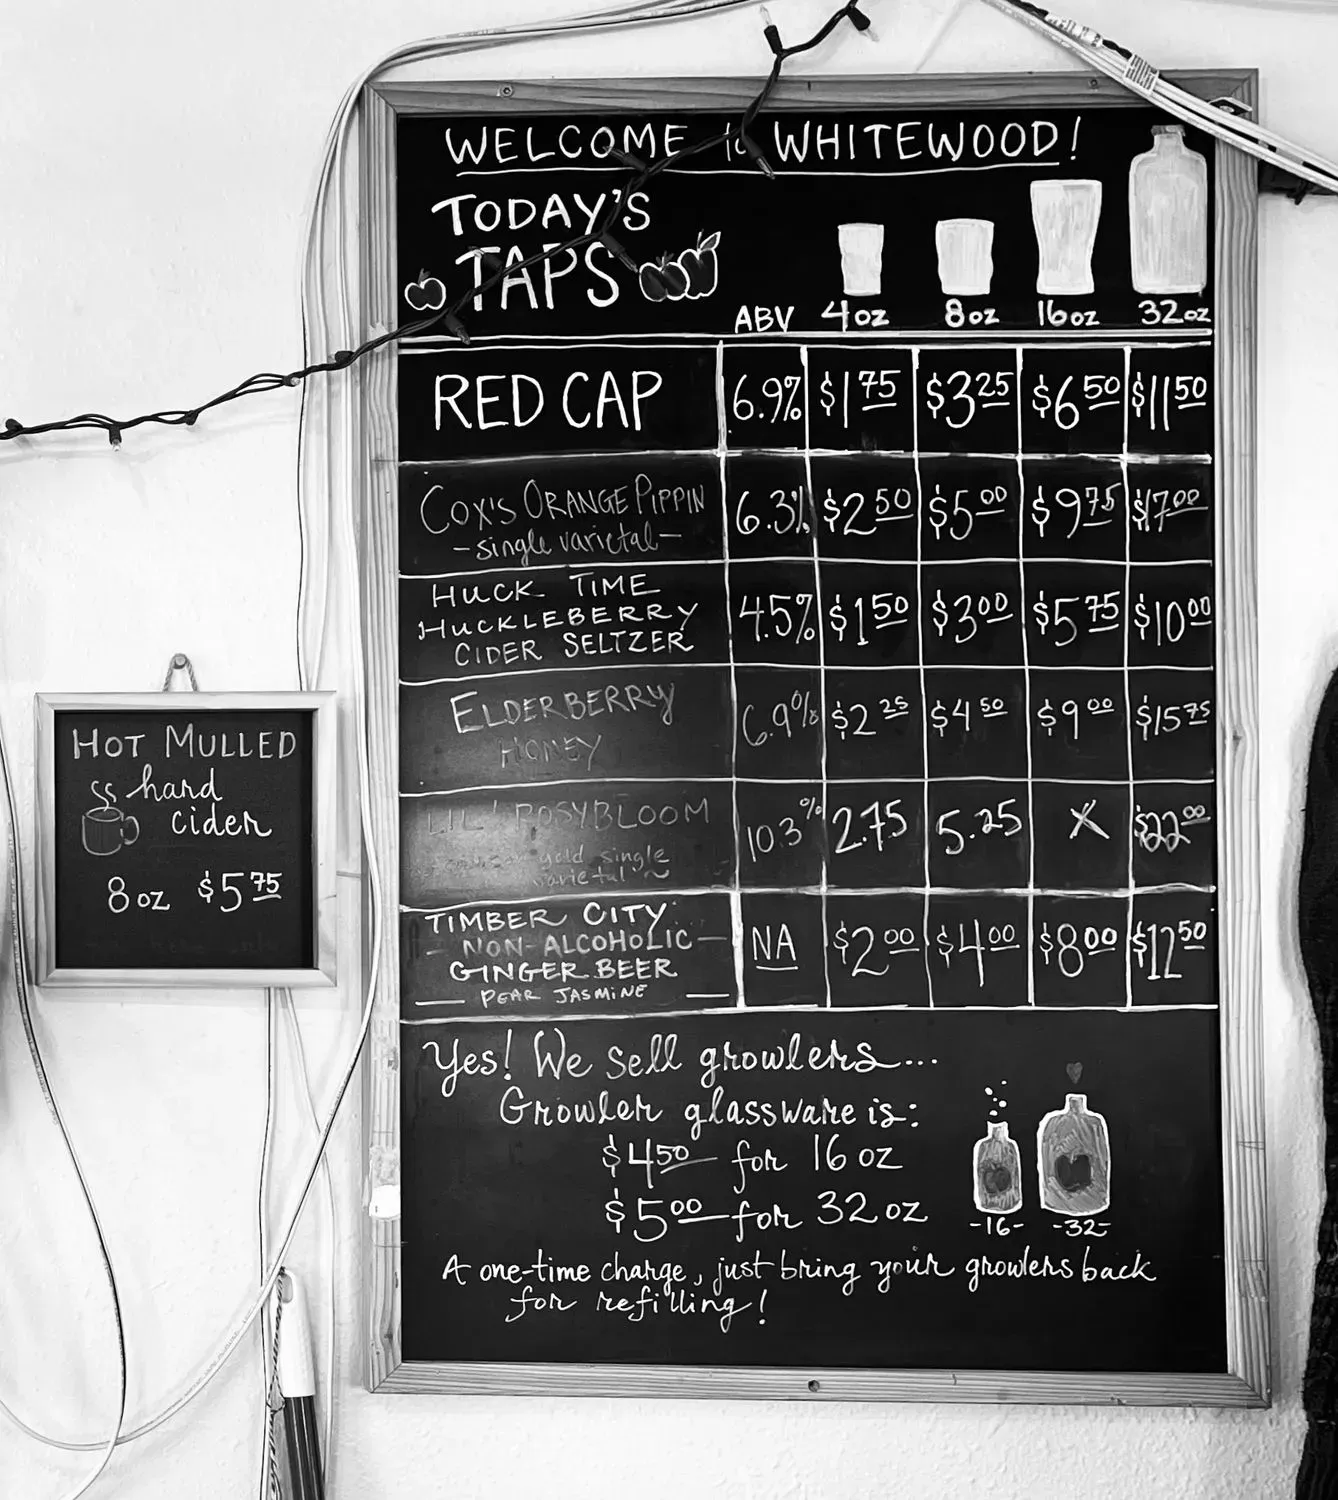 WELCOME to WHITEWOOD!
TODAY'S
TAPS
ABV 4oz 8oz 16oz 32oz
RED CAP 6.9% $1 75 $3 25 $6 50 $11 50
COX'S ORANGE PIPPIN 6.3% $2 50 $5 00 $9 75 $17 00
- single varietal -
HUCK TIME
HUCKLEBERRY 4.5% $1 50 $3 00 $5 75 $10 00
CIDER SELTZER
ELDERBERRY 6.9% $2 25 $4 50 $9 00 $15 75
HONEY
LIL' ROSYBLOOM 10.3% 2.75 5.25 X $22 00
gold single
varietal ~
TIMBER CITY
- NON-ALCOHOLIC - NA $2 00 $4 00 $8 00 $12 50
GINGER BEER
— PEAR JASMINE —
Yes! We sell growlers...
Growler glassware is:
$4 50 for 16 oz
$5 00 for 32 oz
-16- -32-
A one-time charge, just bring your growlers back
for refilling!
HOT MULLED
hard
cider
8oz $5 75